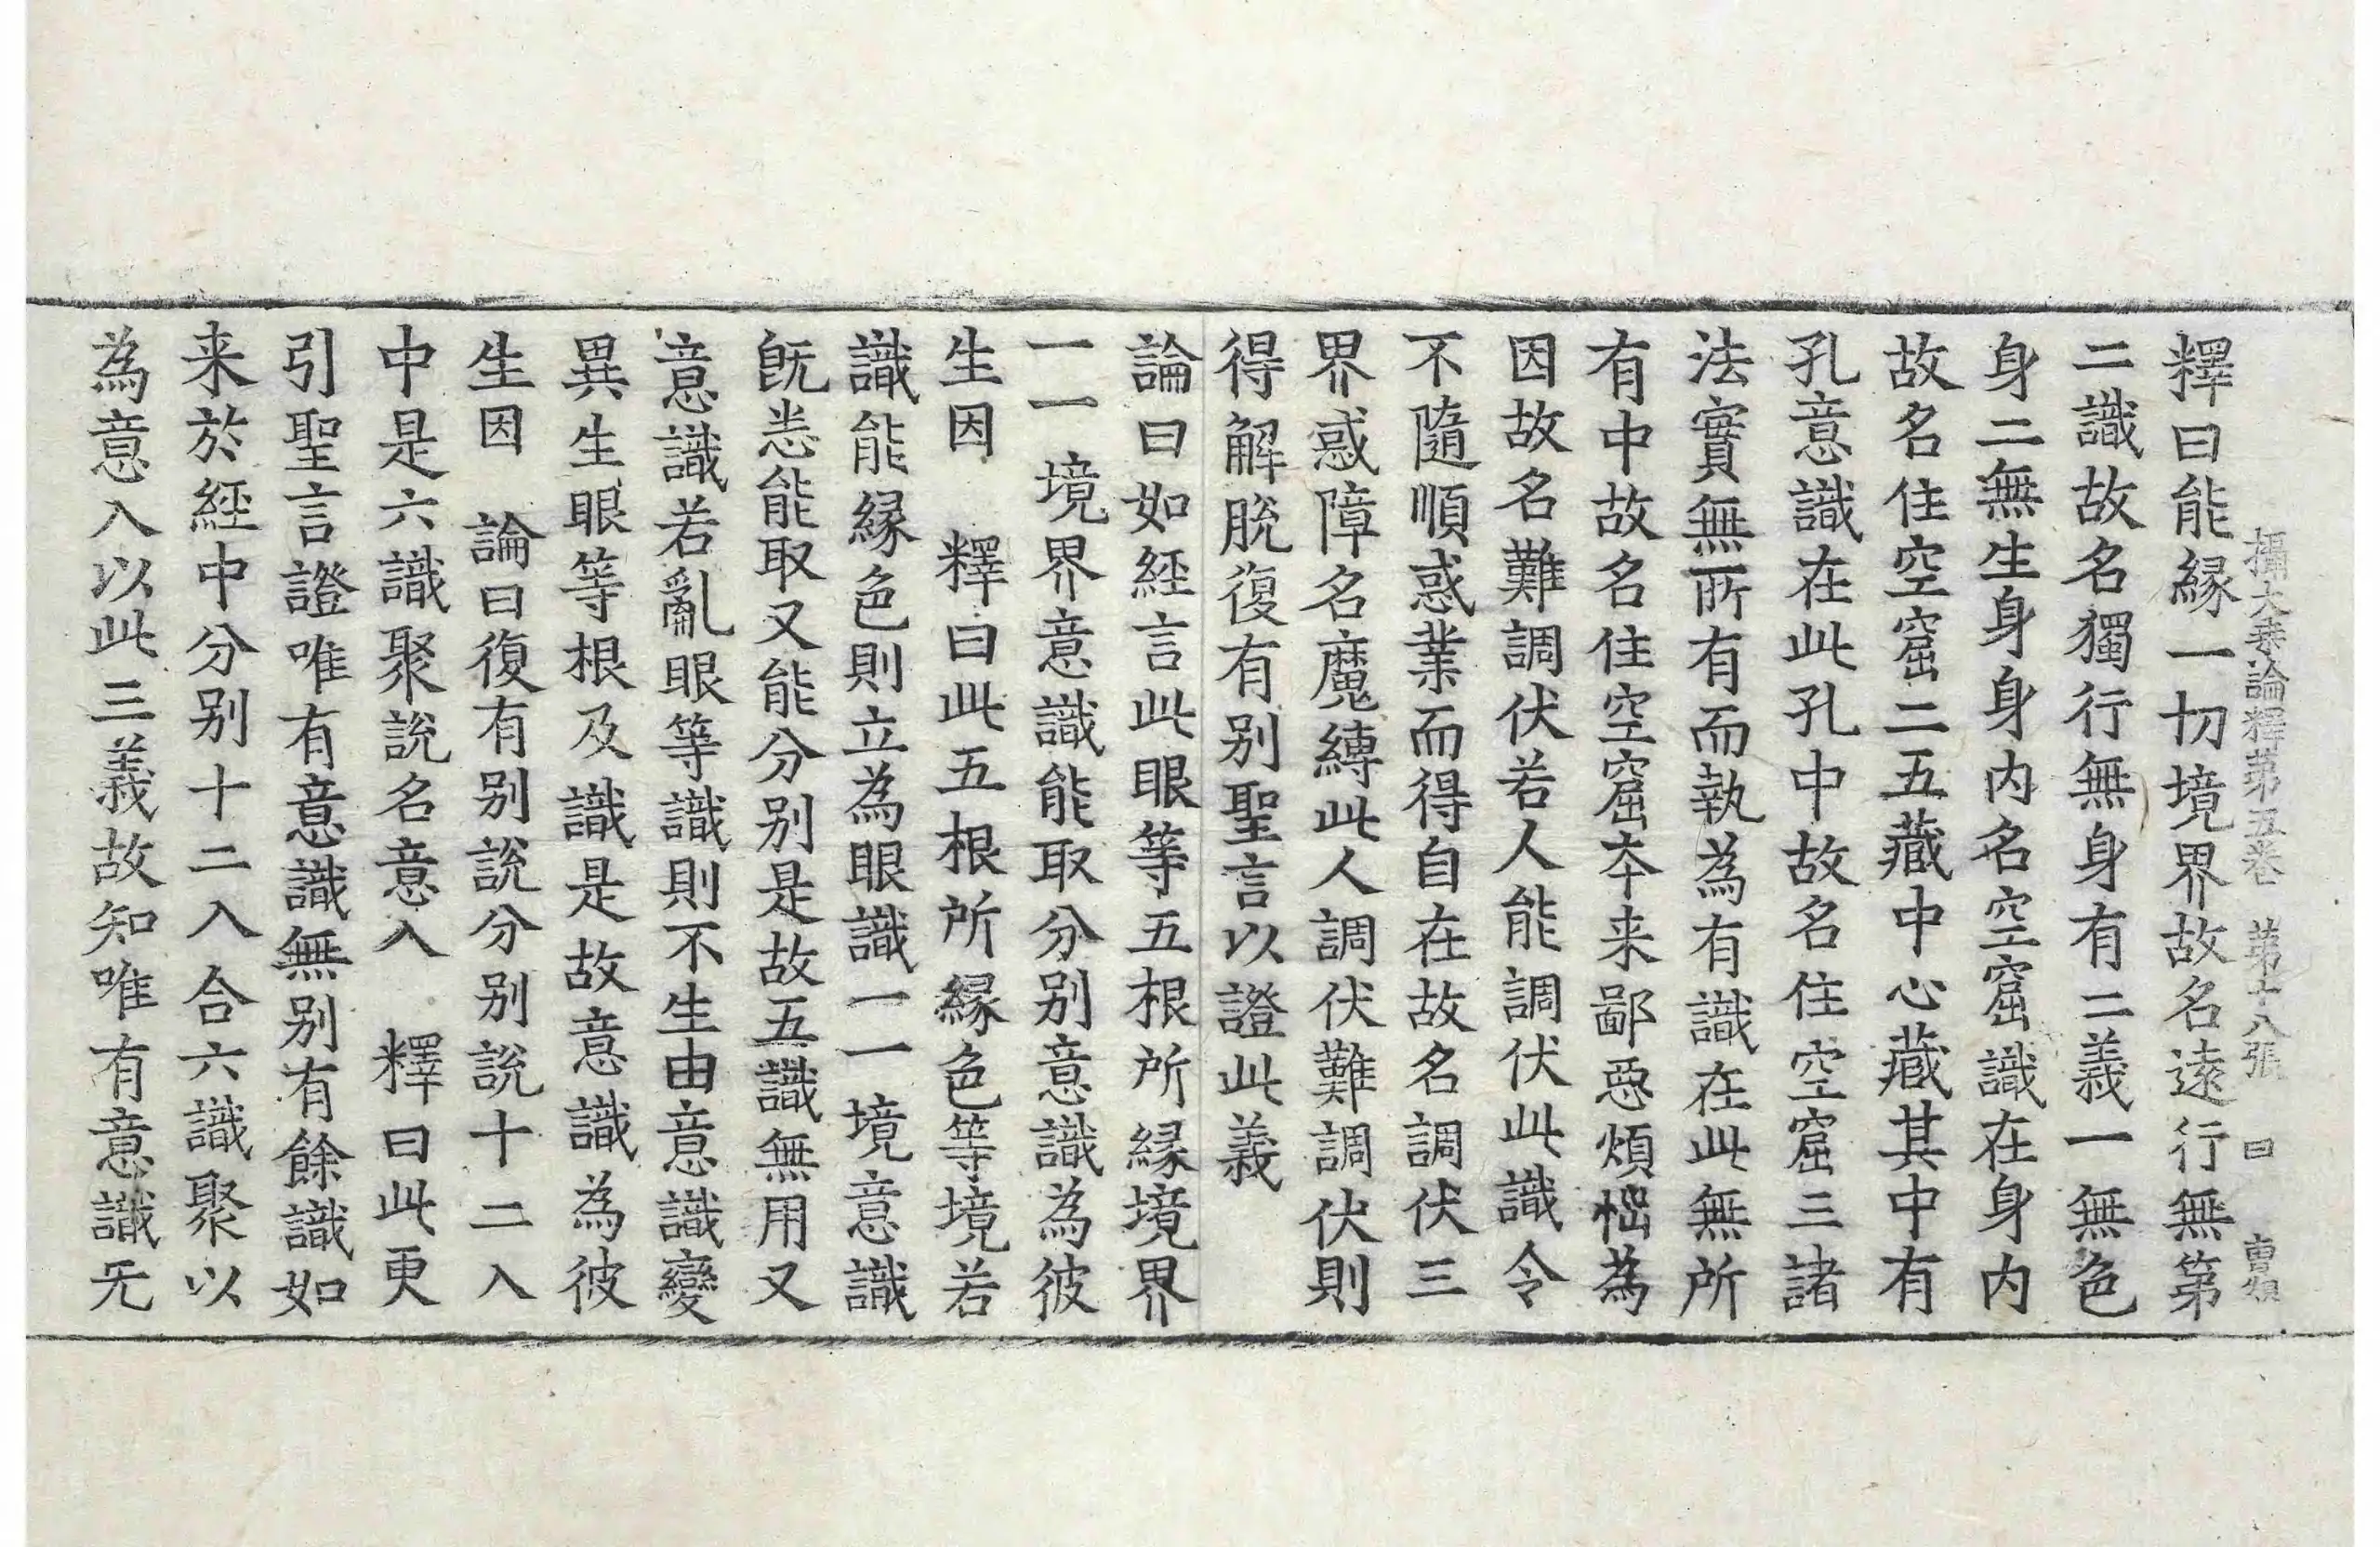 攝大乗論釋第五卷 第十八張 曰
釋曰能縁一切境界故名遠行無第
二識故名獨行無身有二義一無色
身二無生身身内名空窟識在身内
故名住空窟二五藏中心藏其中有
孔意識在此孔中故名住空窟三諸
法實無所有而執為有識在此無所
有中故名住空窟夲来鄙惡煩惱為
因故名難調伏若人能調伏此識令
不隨順惑業而得自在故名調伏三
界惑障名魔縛此人調伏難調伏則
得解脫復有别聖言以證此義
論曰如經言此眼等五根所縁境界
一一境界意識能取分别意識為彼
生因 釋曰此五根所縁色等境若
識能縁色則立為眼識一一境意識
旣悉能取又能分别是故五識無用又
意識若亂眼等識則不生由意識變
異生眼等根及識是故意識為彼
生因 論曰復有别說分别說十二入
中是六識聚說名意入 釋曰此更
引聖言證唯有意識無别有餘識如
来於經中分别十二入合六識聚以
為意入以此三義故知唯有意識无